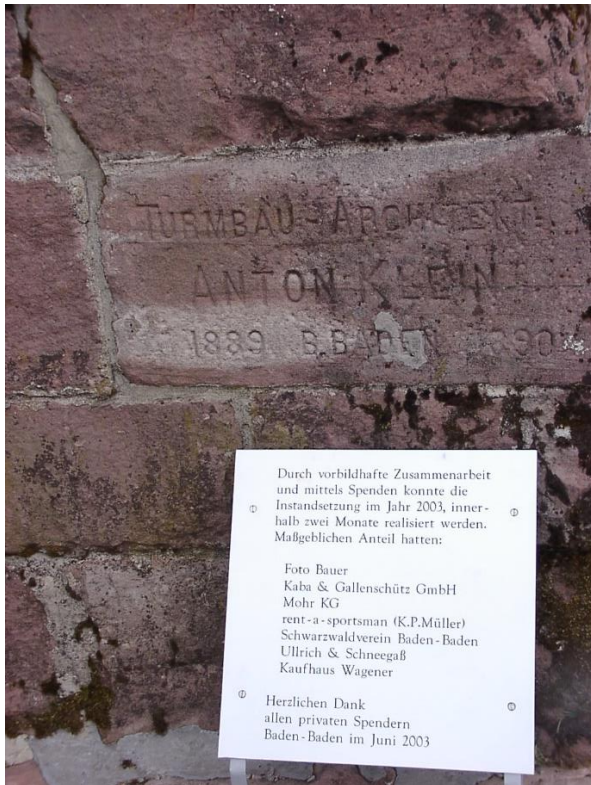 TURMBAU-ARCHITEKT
ANTON KLEIN
1889 B.BADEN 1890
Durch vorbildhafte Zusammenarbeit
und mittels Spenden konnte die
Instandsetzung im Jahr 2003, inner-
halb zwei Monate realisiert werden.
Maßgeblichen Anteil hatten:
Foto Bauer
Kaba & Gallenschütz GmbH
Mohr KG
rent-a-sportsman (K.P.Müller)
Schwarzwaldverein Baden-Baden
Ullrich & Schneegaß
Kaufhaus Wagener
Herzlichen Dank
allen privaten Spendern
Baden-Baden im Juni 2003